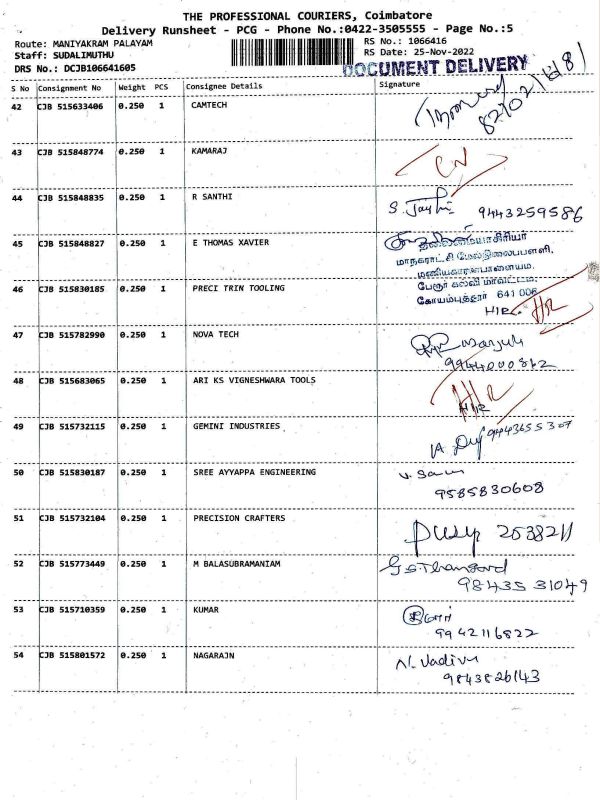 THE PROFESSIONAL COURIERS, Coimbatore
Delivery Runsheet - PCG - Phone No.:0422-3505555 - Page No.:5
Route: MANIYAKRAM PALAYAM
RS No.: 1066416
Staff: SUDALIMUTHU
RS Date: 25-Nov-2022
DRS No.: DCJB106641605
DOCUMENT DELIVERY
S No Consignment No Weight PCS Consignee Details Signature
42 CJB 515633406 0.250 1 CAMTECH
43 CJB 515848774 0.250 1 KAMARAJ
44 CJB 515848835 0.250 1 R SANTHI S. Jaythi 9443259586
45 CJB 515848827 0.250 1 E THOMAS XAVIER
தலைமையாசிரியர்
மாநகராட்சி மேல்நிலைப்பள்ளி,
மணியகாரன்பாளையம்,
பேரூர் கல்வி மாவட்டம்,
கோயம்புத்தூர் 641 006
46 CJB 515830185 0.250 1 PRECI TRIN TOOLING HR
47 CJB 515782990 0.250 1 NOVA TECH
9944000862
48 CJB 515683065 0.250 1 ARI KS VIGNESHWARA TOOLS
49 CJB 515732115 0.250 1 GEMINI INDUSTRIES
50 CJB 515830187 0.250 1 SREE AYYAPPA ENGINEERING
9585830608
51 CJB 515732104 0.250 1 PRECISION CRAFTERS 2538211
52 CJB 515773449 0.250 1 M BALASUBRAMANIAM
98435 31049
53 CJB 515710359 0.250 1 KUMAR
9942116822
54 CJB 515801572 0.250 1 NAGARAJN N. Vadivu
9843826143